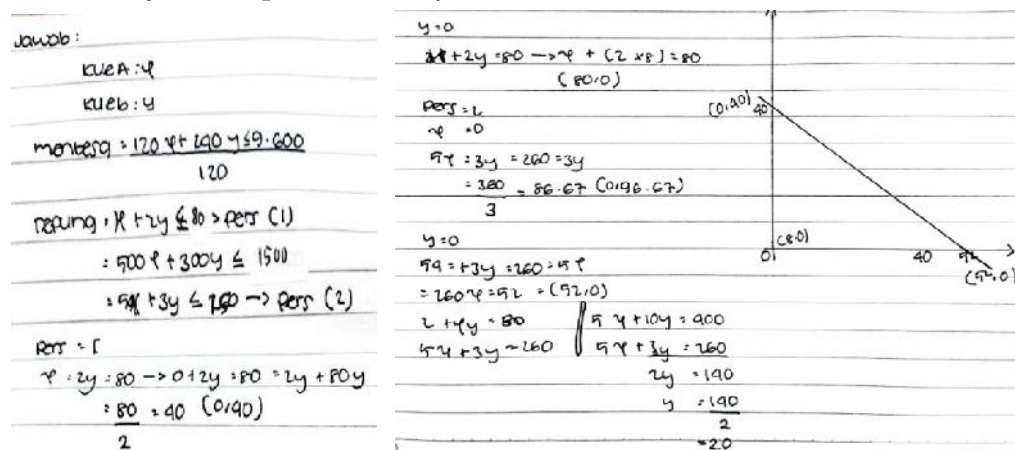 Jawab :
KUE A : x
KUE b : y
mentega = 120 x + 240 y ≤ 9.600
120
x + 2y ≤ 80 > pers (1)
= 500 x + 300 y ≤ 1500
+ 3y ≤ → pers (2)
= 2y = 80 → 0 + 2y = 80 = 2y + 80 y
= 80 = 40 (0,40)
2
y = 0
+ 2y = 80 → x + (2 x 8) = 80
(80.0)
x = 0
5x = 3y = 260 = 3y
= 86.67 (0,96.67)
3
y = 0
= + 3y = 260 = 5x
= 260 x = 52 = (52,0)
= 80
5x + 3y = 260
5x + 10y = 400
5x + 3y = 260
2y = 140
y = 140
2
= 20
(0,40)
40
0
(8.0)
40
52
(52,0)